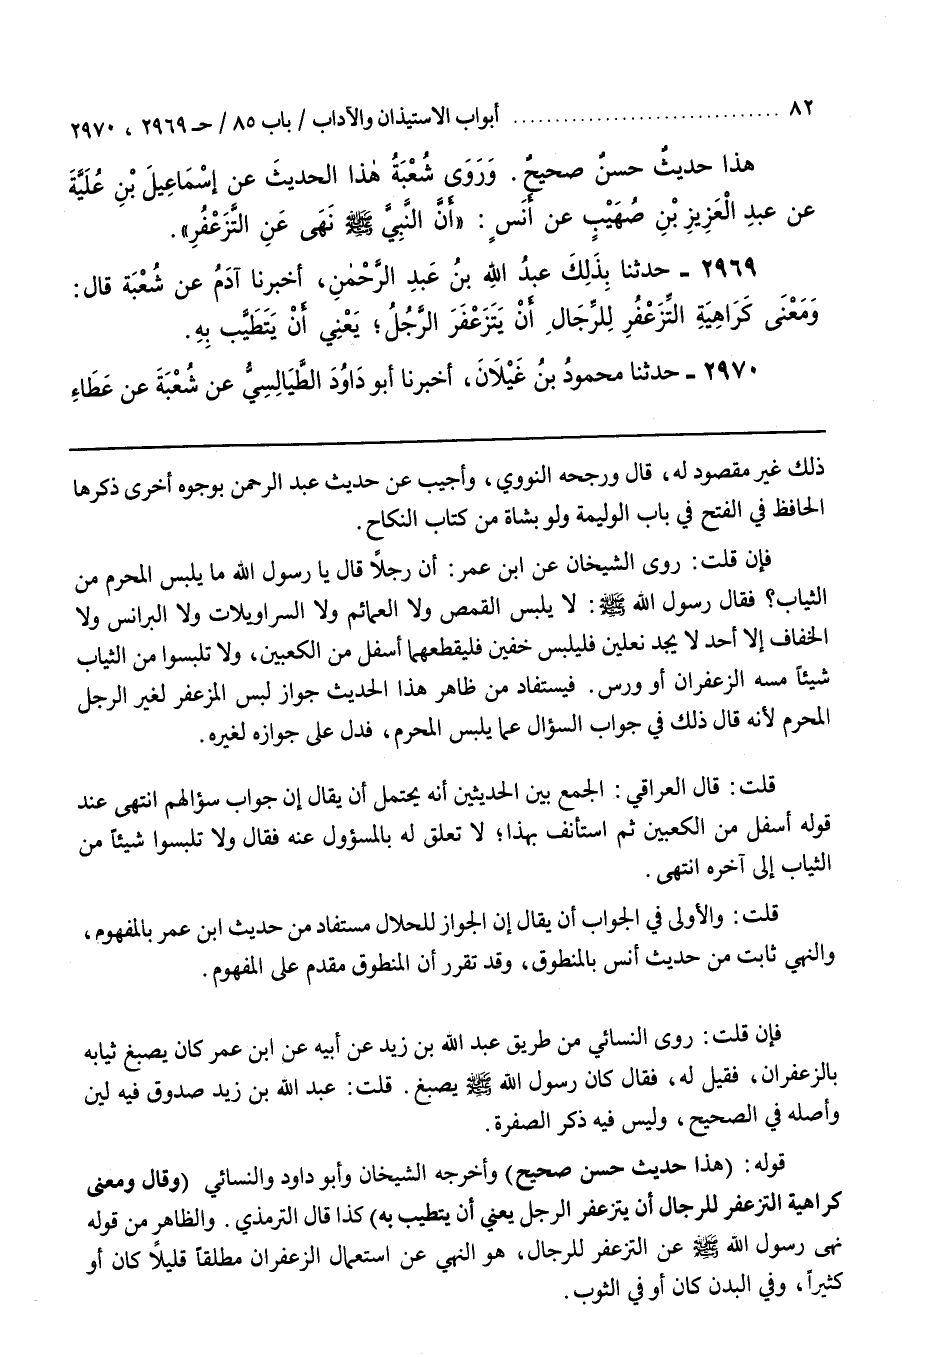 ٨٢ .............................. أبواب الاستيذان والآداب / باب ٨٥ / حـ ٢٩٦٩ ، ٢٩٧٠
هذا حديثٌ حسنٌ صحيحٌ. وَرَوَى شُعْبَةُ هٰذا الحديثَ عن إِسْمَاعِيلَ بْنِ عُلَيَّةَ
عن عبدِ الْعَزِيزِ بْنِ صُهَيْبٍ عن أَنَسٍ: «أَنَّ النَّبِيَّ ﷺ نَهَى عَنِ التَّزَعْفُرِ».
٢٩٦٩ ـ حدثنا بِذَلِكَ عبدُ اللهِ بنُ عَبدِ الرَّحْمٰنِ، أخبرنا آدَمُ عن شُعْبَة قال:
وَمَعْنَى كَرَاهِيَةِ التَّزَعْفُرِ لِلرِّجَالِ أَنْ يَتَزَعْفَرَ الرَّجُلُ؛ يَعْنِي أَنْ يَتَطَيَّب بِهِ.
٢٩٧٠ ـ حدثنا محمودُ بنُ غَيْلَانَ، أخبرنا أبو دَاوُدَ الطَّيَالِسِيُّ عن شُعْبَةَ عن عَطَاءِ
ذلك غير مقصود له، قال ورجحه النووي، وأجيب عن حديث عبد الرحمن بوجوه أخرى ذكرها
الحافظ في الفتح في باب الوليمة ولو بشاة من كتاب النكاح.
فإن قلت: روى الشيخان عن ابن عمر: أن رجلاً قال يا رسول الله ما يلبس المحرم من
الثياب؟ فقال رسول الله ﷺ: لا يلبس القمص ولا العمائم ولا السراويلات ولا البرانس ولا
الخفاف إلا أحد لا يجد نعلين فليلبس خفين فليقطعهما أسفل من الكعبين، ولا تلبسوا من الثياب
شيئاً مسه الزعفران أو ورس. فيستفاد من ظاهر هذا الحديث جواز لبس المزعفر لغير الرجل
المحرم لأنه قال ذلك في جواب السؤال عما يلبس المحرم، فدل على جوازه لغيره.
قلت: قال العراقي: الجمع بين الحديثين أنه يحتمل أن يقال إن جواب سؤالهم انتهى عند
قوله أسفل من الكعبين ثم استأنف بهذا؛ لا تعلق له بالمسؤول عنه فقال ولا تلبسوا شيئاً من
الثياب إلى آخره انتهى.
قلت: والأولى في الجواب أن يقال إن الجواز للحلال مستفاد من حديث ابن عمر بالمفهوم،
والنهي ثابت من حديث أنس بالمنطوق، وقد تقرر أن المنطوق مقدم على المفهوم.
فإن قلت: روى النسائي من طريق عبد الله بن زيد عن أبيه عن ابن عمر كان يصبغ ثيابه
بالزعفران، فقيل له، فقال كان رسول الله ﷺ يصبغ. قلت: عبد الله بن زيد صدوق فيه لين
وأصله في الصحيح، وليس فيه ذكر الصفرة.
قوله: (هذا حديث حسن صحيح) وأخرجه الشيخان وأبو داود والنسائي (وقال ومعنى
كراهية التزعفر للرجال أن يتزعفر الرجل يعني أن يتطيب به) كذا قال الترمذي. والظاهر من قوله
نهى رسول الله ﷺ عن التزعفر للرجال، هو النهي عن استعمال الزعفران مطلقاً قليلاً كان أو
كثيراً، وفي البدن كان أو في الثوب.